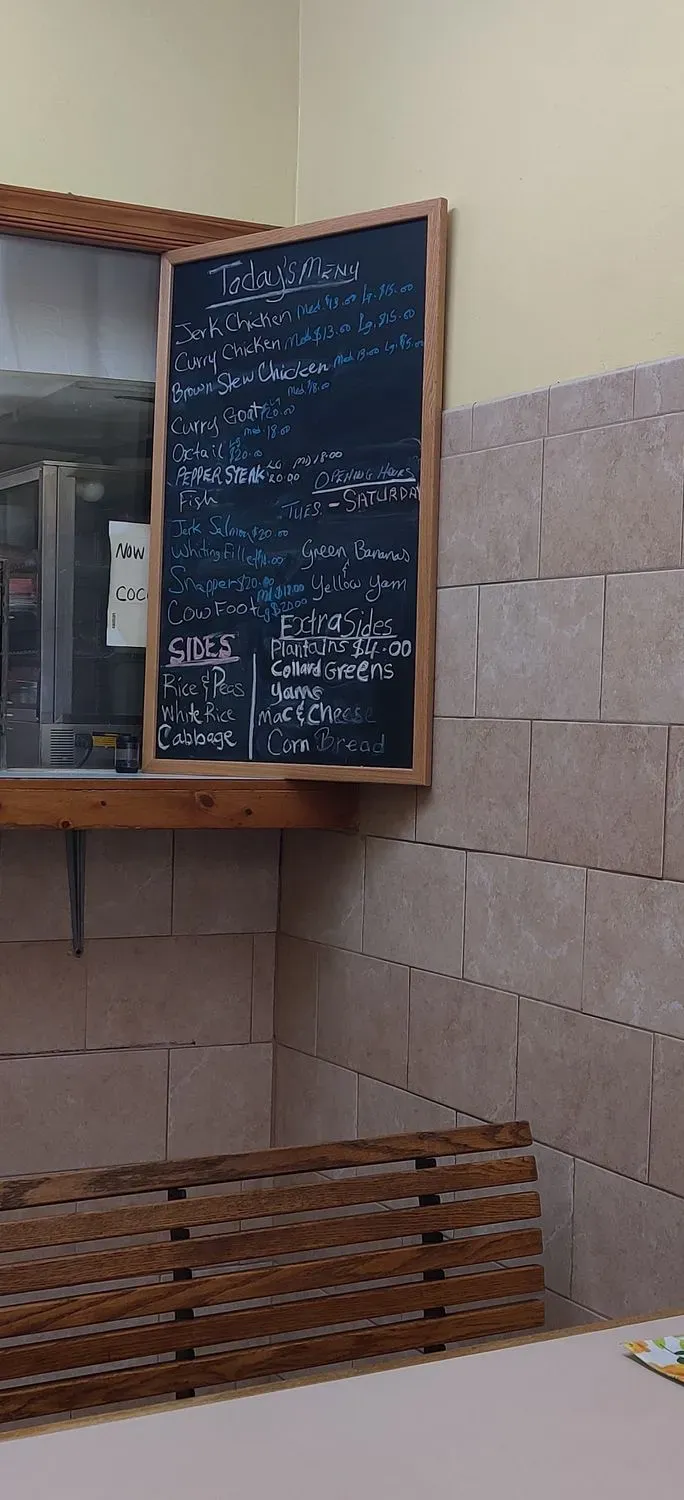 Today's Menu
Jerk Chicken Med. $13.00 Lg. $15.00
Curry Chicken Med $13.00 Lg. $15.00
Brown Stew Chicken Med 13.00 Lg.
Med. 18.00
Curry Goat $20.00
Med. 18.00
Oxtail Lg $20.00
PEPPER STEAK LG 20.00 MD 18.00
OPENING HOURS
TUES. - SATURDAY
Fish
Jerk Salmon $20.00
Whiting Fillet
Snapper $20.00
Cow Foot Md $18.00 Lg $20.00
Green Bananas
&
Yellow Yam
SIDES
Rice & Peas
White Rice
Cabbage
Extra Sides
Plantains $4.00
Collard Greens
Yams
Mac & Cheese
Corn Bread
NOW
COC